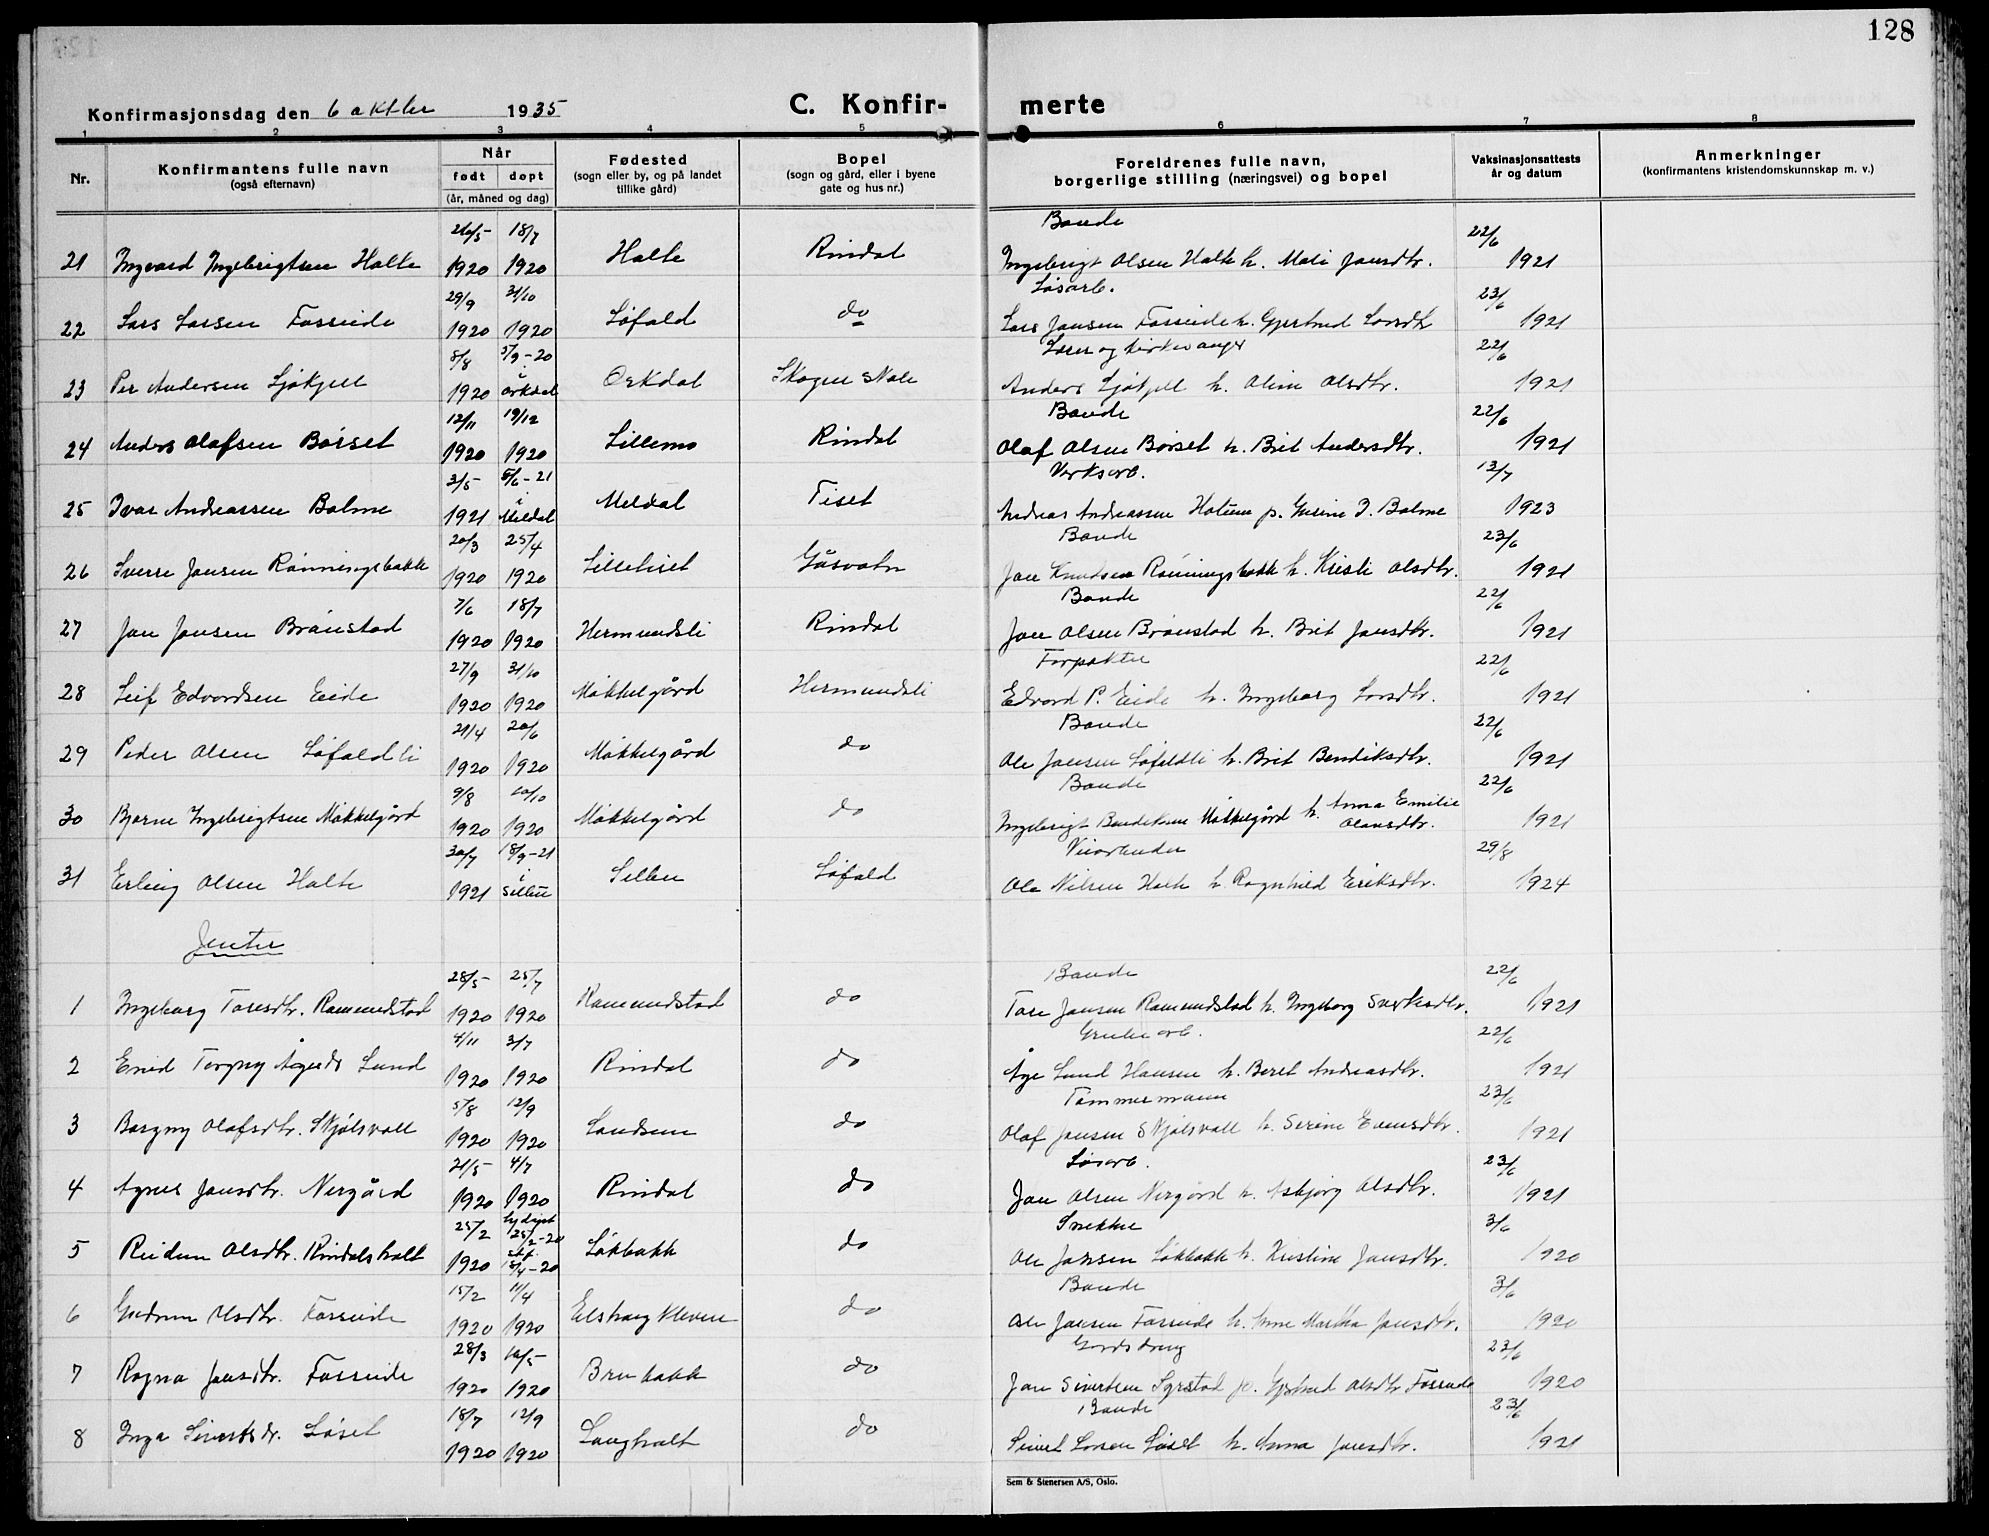 128
Konfirmasjonsdag den 6 oktber 1935
C. Konfir- merte
1 2 3 4 5 6 7 8
Nr.
Konfirmantens fulle navn
(også efternavn)
Når
født døpt
(år, måned og dag)
Fødested
(sogn eller by, og på landet
tillike gård)
Bopel
(sogn og gård, eller i byene
gate og hus nr.)
Foreldrenes fulle navn,
borgerlige stilling (næringsvei) og bopel
Vaksinasjonsattests
år og datum
Anmerkninger
(konfirmantens kristendomskunnskap m. v.)
26/5 18/7 Bonde 22/6
21 Ingvard Ingebrigtsen Halte 1920 1920 Halte Rindal Ingebrigt Olsen Halte h. Mali Jonsdtr. 1921
29/9 31/10 Løsarb. 23/6
22 Lars Larsen Fosseide 1920 1920 Løfald do Lars Jonsen Fosseide h. Gjertrud Larsdtr 1921
8/8 5/9-20 Lærer og kirkesanger 22/6
23 Per Andersen Sjøkjell 1920 i Orkdal Orkdal Skogen skole Anders Sjøkjell h. Oline Olsdtr. 1921
12/11 19/12 Bonde 22/6
24 Anders Olafsen Børset 1920 1920 Lillemo Rindal Olaf Olsen Børset h. Brit Andersdtr. 1921
3/5 5/6-21 Verksarb. 13/7
25 Ivar Andreassen Bolme 1921 i Meldal Meldal Tiset Andreas Andreassen p. I. Bolme 1923
20/3 25/4 Bonde 23/6
26 Sverre Jonsen Rønningsbakk 1920 1920 Lilletiset Gåsvatn Jon Knudsen Rønningsbakk h. Kristi Olsdtr. 1921
7/6 18/7 Bonde 22/6
27 Jon Jonsen Brønstad 1920 1920 Hermundsli Rindal Jon Olsen Brønstad h. Brit Jonsdtr. 1921
27/9 31/10 Forpakter 22/6
28 Leif Edvardsen Eide 1920 1920 Møkkelgård Hermundsli Edvard P. Eide h. Ingeborg Larsdtr. 1921
21/4 20/6 Bonde 22/6
29 Peder Olsen Løfaldli 1920 1920 Møkkelgård do Ole Jonsen Løfaldli h. Brit Bendiksdtr. 1921
9/8 10/10 Bonde 22/6
30 Bjarne Ingebrigtsen Møkkelgård 1920 1920 Møkkelgård do Ingebrigt Bendiksen Møkkelgård h. Anna Emilie Olausdtr. 1921
30/7 18/9-21 Veiarbeider 29/8
31 Erling Olsen Halte 1921 i Sellen Sellen Løfald Ole Nilsen Halte h. Ragnhild Eriksdtr. 1924
Jenter
28/5 25/7 Bonde 22/6
1 Ingeborg Toresdtr. Romundstad 1920 1920 Romundstad do Tore Jonsen Romundstad h. Ingeborg 1921
4/11 3/7 Grubearb. 22/6
2 Torgny Lund 1920 1920 Rindal do Åge Lund Hansen h. Beret Andreasdtr. 1921
5/8 12/9 Tømmermann 23/6
3 Borgny Olafsdtr. Skjølsvoll 1920 1920 Landsem do Olaf Jonsen Skjølsvoll h. Serine Evensdtr. 1921
21/5 4/7 Løsarb. 23/6
4 Agnes Jonsdtr. Nergård 1920 1920 Rindal do Jon Olsen Nergård h. Asbjørg Olsdtr. 1921
25/2 hj.døpt 25/2-20 Snekker 3/6
5 Reidun Olsdtr. Rindalsholt 1920 stf. 18/4-20 Løkbakk do Ole Johsen Løkbakk h. Kristine Jonsdtr. 1920
15/2 11/4 Bonde 3/6
6 Gudrun Olsdtr. Fosseide 1920 1920 Elshaug Kleven do Ole Jonsen Fosseide h. Anne Martha Jonsdtr. 1920
28/3 10/5 Gårdsdreng 23/6
7 Ragna Jonsdtr. Fosseide 1920 1920 Brubakk do Jon Sivertsen Syrstad p. Gjertrud Olsdtr Fosseide 1920
18/7 12/9 Bonde 23/6
8 Inga Sivertsdr. Løset 1920 1920 Langholt do Sivert Larsen Løset h. Anna Jonsdtr. 1921
Sem & Stenersen A/S, Oslo.